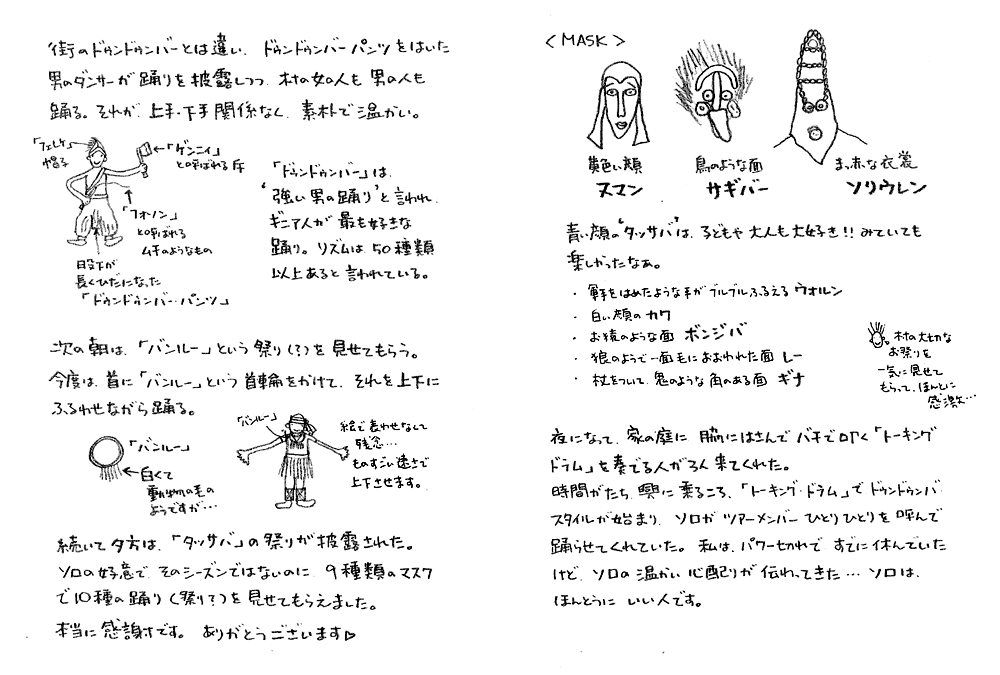 街のドゥンドゥンバーとは違い、ドゥンドゥンバーパンツをはいた
男のダンサーが踊りを披露しつつ、村の女の人も男の人も
踊る。それが、上手・下手関係なく、素朴で温かい。
「フェレケ」
帽子
「ゲンニィ」
と呼ばれる斧
「フォノン」
と呼ばれる
ムチのようなもの
股下が
長くひだになった
「ドゥンドゥンバー・パンツ」
「ドゥンドゥンバー」は、
'強い男の踊り'と言われ、
ギニア人が最も好きな
踊り。リズムは50種類
以上あると言われている。
次の朝は、「バンルー」という祭り(?)を見せてもらう。
今度は、首に「バンルー」という首輪をかけて、それを上下に
ふるわせながら踊る。
「バンルー」
白くて
動物の毛の
ようですが…
「バンルー」
絵で表わせなくて
残念…
ものすごい速さで
上下させます。
続いて夕方は、「タッサバ」の祭りが披露された。
ソロの好意で、そのシーズンではないのに、9種類のマスク
で10種の踊り(祭り?)を見せてもらえました。
本当に感謝です。ありがとうございます♡
<MASK>
黄色い顔
ヌマン
鳥のような面
サギバー
まっ赤な衣裳
ソリウレン
青い顔の'タッサバ'は、子どもや大人も大好き!!みていても
楽しかったなぁ。
・軍手をはめたような手がブルブルふるえる ウオルン
・白い顔の カワ
・お猿のような面 ボンジバ
・狼のようで一面毛におおわれた面 レー
・杖をついて、鬼のような角のある面 ギナ
村の大切な
お祭りを
一気に見せて
もらって、ほんとに
感激…
夜になって、家の庭に脇にはさんでバチで叩く「トーキング
ドラム」を奏でる人が3人来てくれた。
時間がたち、興に乗るころ、「トーキング・ドラム」でドゥンドゥンバ
スタイルが始まり、ソロがツアーメンバーひとりひとりを呼んで
踊らせてくれていた。私は、パワー切れで、すでに休んでいた
けど、ソロの温かい心配りが伝わってきた…ソロは、
ほんとうにいい人です。